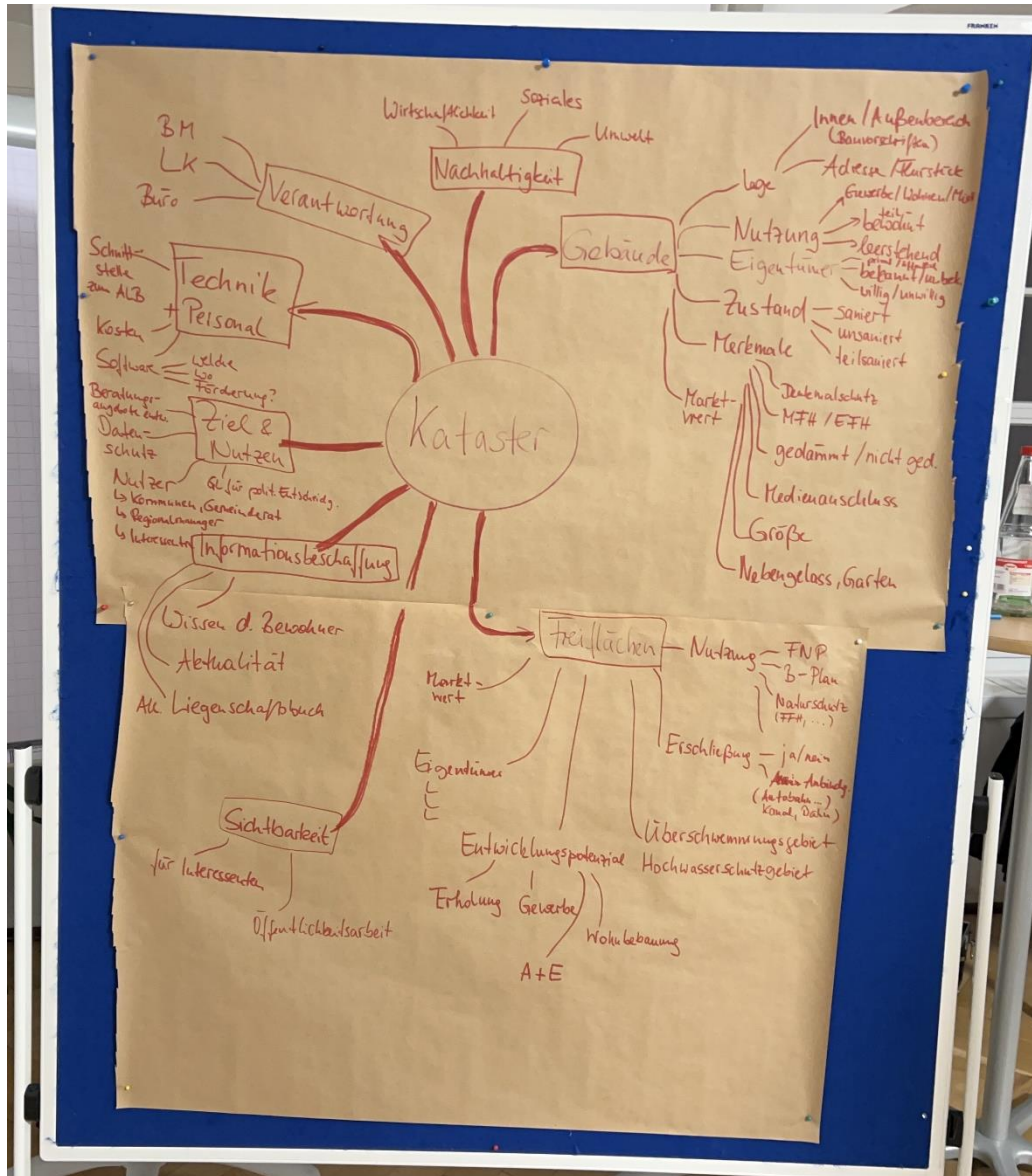 FRANKEN
Kataster
Nachhaltigkeit
Wirtschaftlichkeit
Soziales
Umwelt
Verantwortung
BM
LK
Büro
Technik
+ Personal
Schnitt-
stelle
zum ALB
Kosten
Software
welche
wo
Förderung?
Ziel &
Nutzen
Beratungs-
angebote
Daten-
schutz
Nutzer
↳ Kommunen, Gemeinderat
↳ Regionalmanager
QL für polit. Entscheidg.
Informationsbeschaffung
Wissen d. Bewohner
Aktualität
Liegenschaftsbuch
Sichtbarkeit
für Interessenten
Öffentlichkeitsarbeit
Gebäude
Lage
Innen/Außenbereich
(Bauvorschriften)
Adresse/Flurstück
Nutzung
Gewerbe/Wohnen/
teil-
bewohnt
leerstehend
Eigentümer
bekannt/unbek
willig/unwillig
Zustand
saniert
unsaniert
teilsaniert
Merkmale
Denkmalschutz
MFH/EFH
gedämmt/nicht ged.
Medienanschluss
Größe
Nebengelass, Garten
Markt-
wert
Freiflächen
Nutzung
FNP
B-Plan
Naturschutz
(FFH, ...)
Erschließung
ja/nein
Anbindg.
(Autobahn...
Kanal, Bahn)
Überschwemmungsgebiet
Hochwasserschutzgebiet
Entwicklungspotenzial
Erholung
Gewerbe
Wohnbebauung
A+E
Eigentümer
Markt-
wert